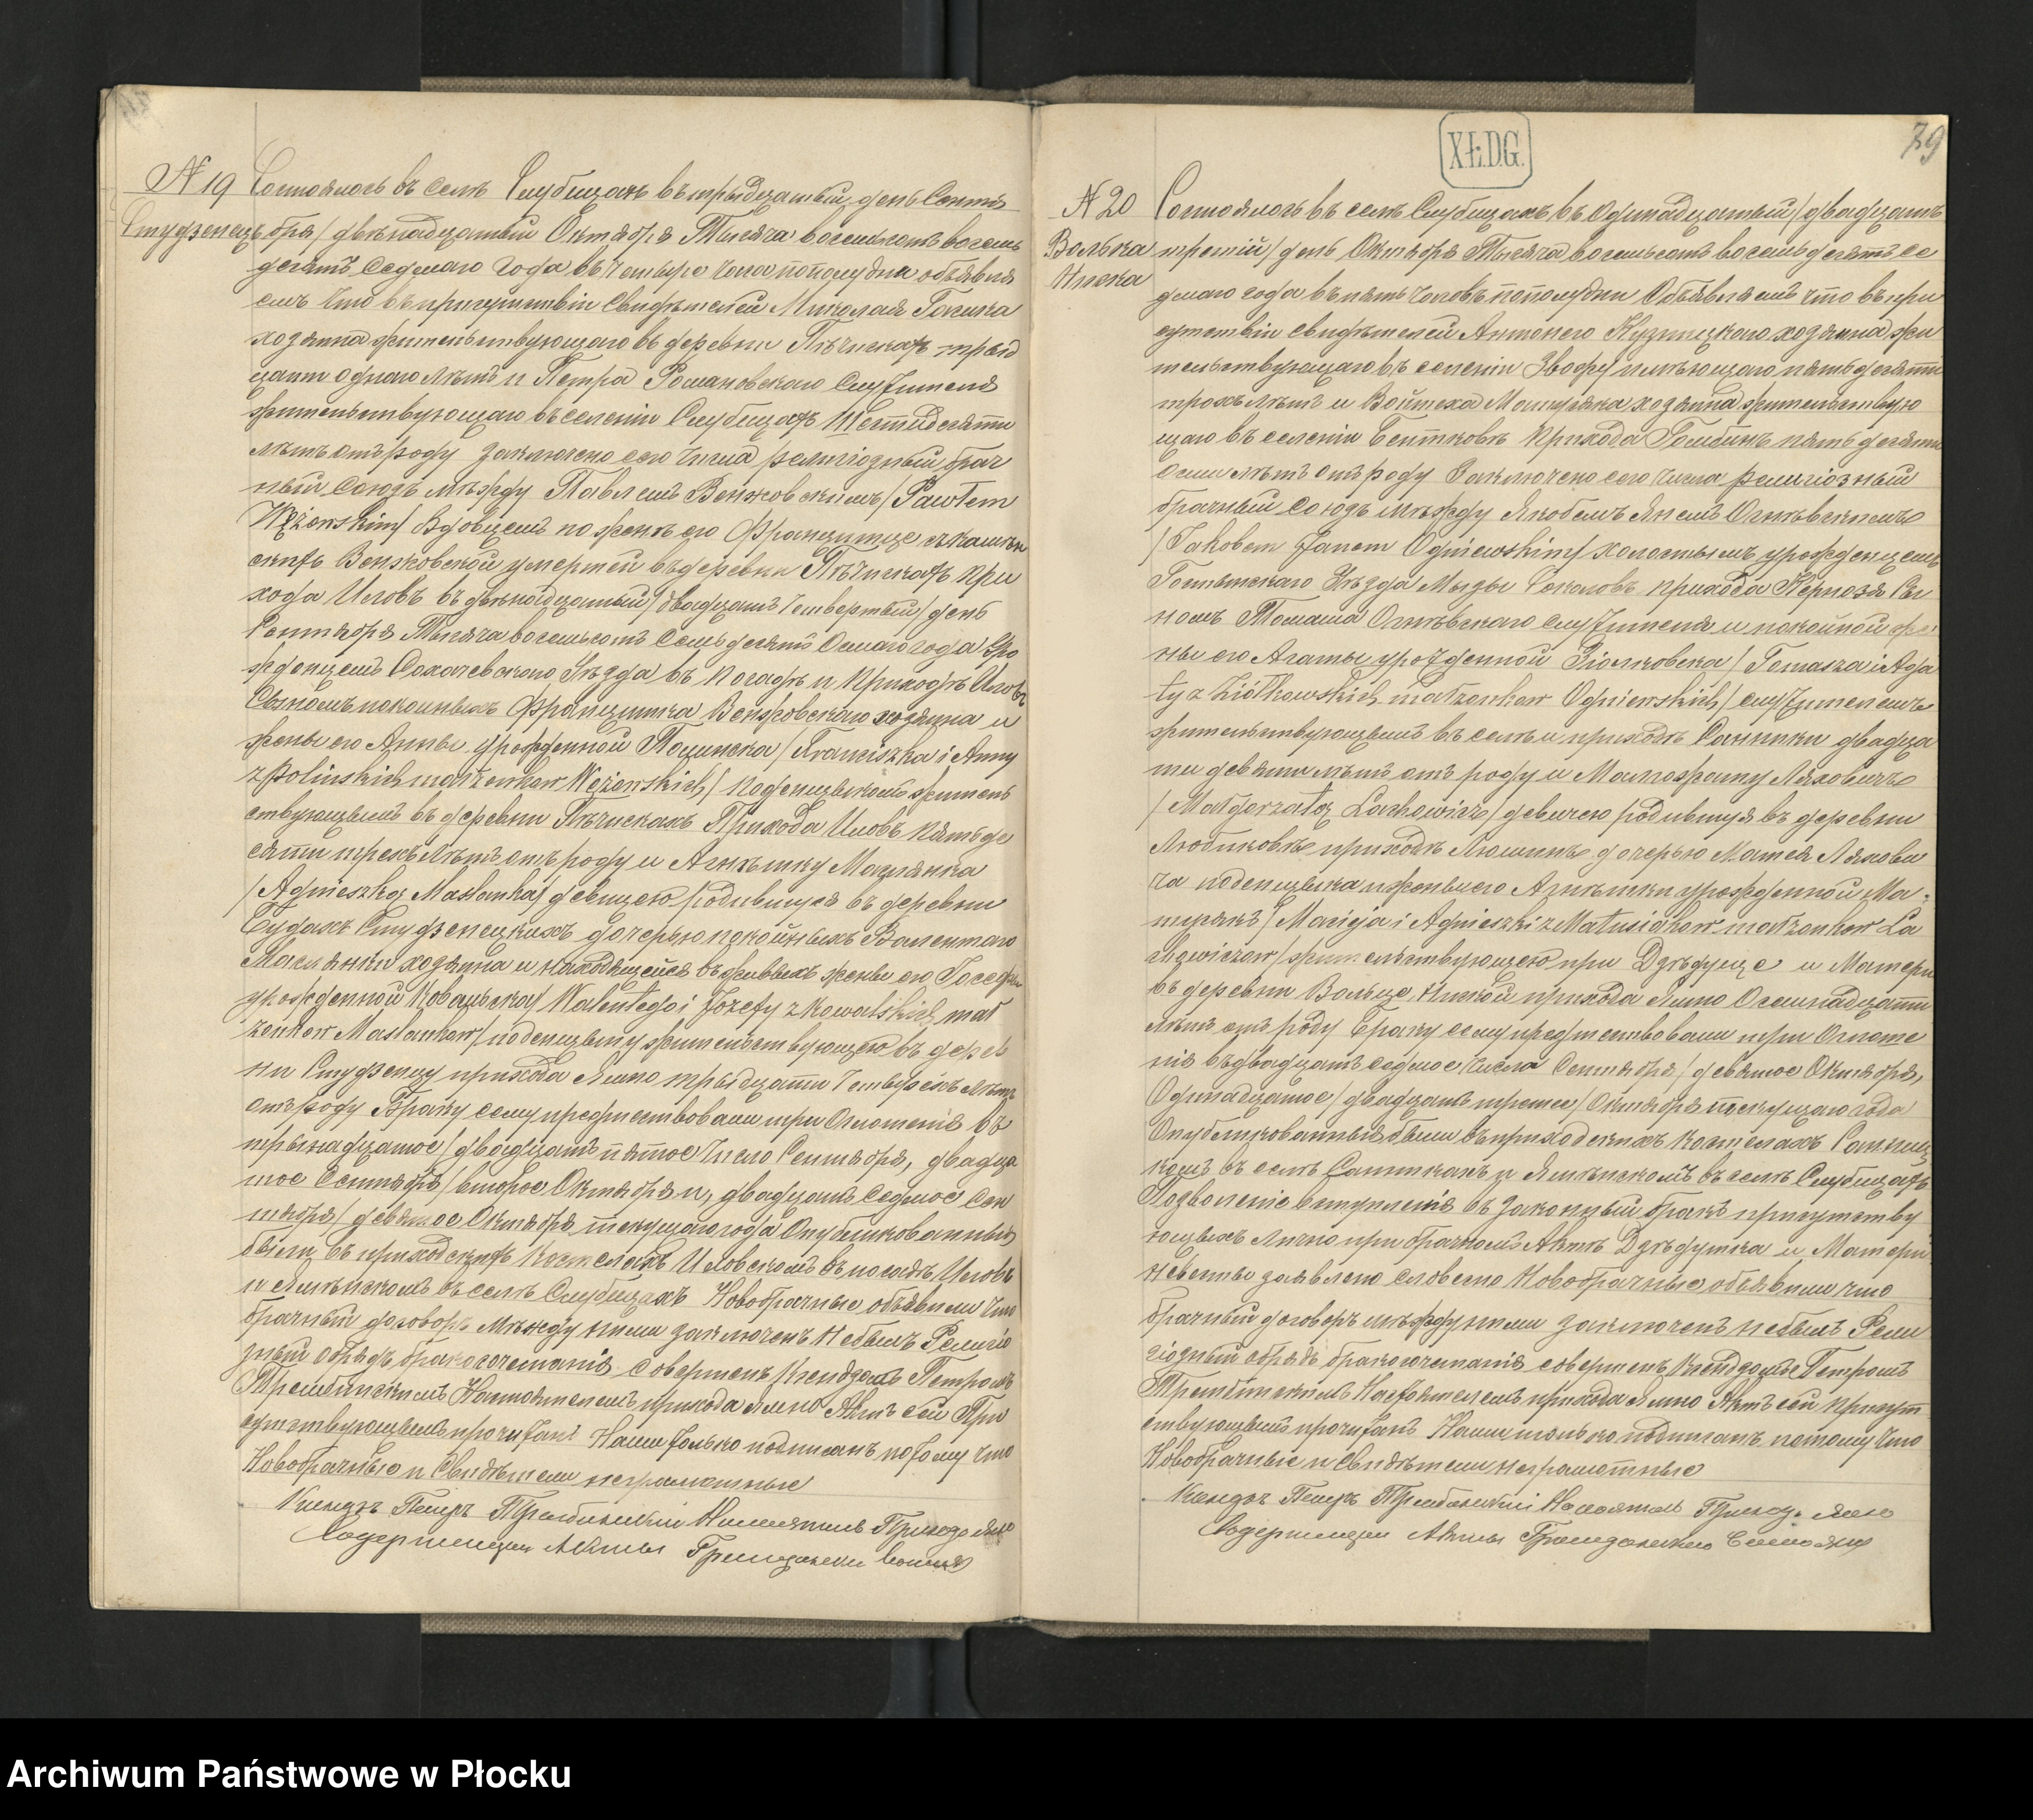 N 19
Студзенецъ
Состоялось въ селѣ Слубицахъ въ тридцатый день Сентя
бря /двѣнадцатый Октября/ Тысяча восемьсотъ восемь
десятъ седьмаго года въ четыре часа пополудни объявля
емъ что въ присутствіи свидѣтелей Миколая
хозяина жительствующаго въ деревни Пѣчискахъ трид
цати одного лѣтъ и Петра Романовскаго служителя
жительствующаго въ селеніи Слубицахъ Шестидесяти
лѣтъ отъ роду заключено сего числа религіозный брач
ный союзъ между Павлемъ Венжовскимъ /Pawłem
Wężowskim/ вдовцемъ по женѣ его Францишце
Венжовской умершей въ деревни Пѣчискахъ при
хода Иловъ въ двѣнадцатый /двадцать четвертый/ день
Сентября Тысяча восемьсотъ семьдесятъ осмаго года уро
жденцемъ Сохачевскаго Уѣзда въ посадѣ и приходѣ Иловъ
сыномъ покойныхъ Францишка Венжовскаго хозяина и
жены его Анны урожденной Полинска /Franciszka i Anny
z Polinskich małżonkow Wężowskich/ поденщикомъ житель
ствующимъ въ деревни Пѣчискахъ Прихода Иловъ пятьде
сяти трехъ лѣтъ отъ роду и Агнѣшку Маслянка
/Agnieszką Maslanką/ девицею родившуся въ деревни
Будахъ Студзенецкихъ дочерью покойныхъ Валентаго
Маслянки хозяина и находящейся въ живыхъ жены его Іосефы
урожденной Ковальска /Walentego i Józefy z Kowalskich mał
żonkow Maslankow/ поденщицу жительствующею въ дерев
ни Студзенцу прихода Ямно тридцати четырехъ лѣтъ
отъ роду Браку сему предшествовали три Оглошенія въ
тринадцатое /двадцать пятое число Сентября, двадца
тое Сентября /второе Октября и, двадцать седмое Сен
тября /девятое Октября текущаго года Опубликованныя
были въ приходскихъ костелахъ Иловскомъ въ посадѣ Иловѣ
и Ямнѣнскомъ въ селѣ Слубицахъ Новобрачные объявили что
брачный договоръ между ними заключенъ небылъ Религіо
зный обрядъ бракосочетанія совершенъ Ксендзомъ Петромъ
Трембинскимъ Настоятелемъ прихода Ямно Актъ сей При
сутствующимъ прочитанъ Нами только подписанъ потому что
Новобрачные и свидѣтели неграмотные
Ксендзъ Петръ Трембинскій Настоятель Прихода Ямно
Содержащій Акты Гражданскаго состоянія
X.Ł.D.G.
79
N 20
Волька
Нижна
Состоялось въ селѣ Слубицахъ въ Одинадцатый /двадцать
третій/ день Октября Тысяча восемьсотъ восемьдесятъ се
дмаго года въ пять часовъ пополудни Объявляемъ что въ при
сутствіи свидѣтелей Антонего хозяина жи
тельствующаго въ селеніи имѣющаго пятьдесяти
трохъ лѣтъ и Войтеха Матусяка хозяина жительствую
щаго въ селеніи прихода Гомбинъ пятьдесяти
осми лѣтъ отъ роду Заключено сего числа религіозный
брачный союзъ между Якобемъ Янемъ Огнѣвскимъ
/Jakobem Janem Ogniewskim/ холостымъ урожденцемъ
Гостынскаго Уѣзда Мызы Соколовъ прихода Кернозя Сы
номъ Томаша Огнѣвскаго служителя и покойной же
ны его Агаты урожденной Зіолковска /Tomasza i Aga
ty z Ziółkowskich małżonkow Ogniewskich/ служителемъ
жительствующимъ въ селѣ и приходѣ Санники двадца
ти девяти лѣтъ отъ роду и Малгожату Ляховичъ
/Małgorzatą Lachowicz/ девицею родившуя въ деревни
Любиковѣ приходѣ дочерью Матея Ляхови
ча поденщика и жены его Агнѣшки урожденной Ма-
тусякъ /Macieja i Agnieszki z Matusiakow małżonkow La
chowiczow/ жительствующею при Дѣдусце и Матери
въ деревни Вольце Нижной прихода Ямно Осмнадцати
лѣтъ отъ роду Браку сему предшествовали три Оглоше
нія въ двадцать седмое числа Сентября /девятое Октября,
Одинадцатое /двадцать третее/ Октября текущаго года
Опубликованныя были въ приходскихъ костелахъ Санниц
комъ въ селѣ Санникахъ и Ямнѣнскомъ въ селѣ Слубицахъ
Позволеніе вступленія въ законный бракъ присутству
ющихъ лично при брачномъ Актѣ Дѣдушка и Матери
невѣсты заявлено словесно Новобрачные объявили что
брачный договоръ между ними заключенъ небылъ Рели
гіозный обрядъ бракосочетанія совершенъ Ксендзомъ Петромъ
Трембинскимъ Настоятелемъ прихода Ямно Актъ сей присут
ствующимъ прочитанъ Нами только подписанъ потому что
Новобрачные и свидѣтели неграмотные
Ксендзъ Петръ Трембинскій Настоятель Прихода Ямно
Содержащій Акты Гражданскаго Состоянія
Archiwum Państwowe w Płocku